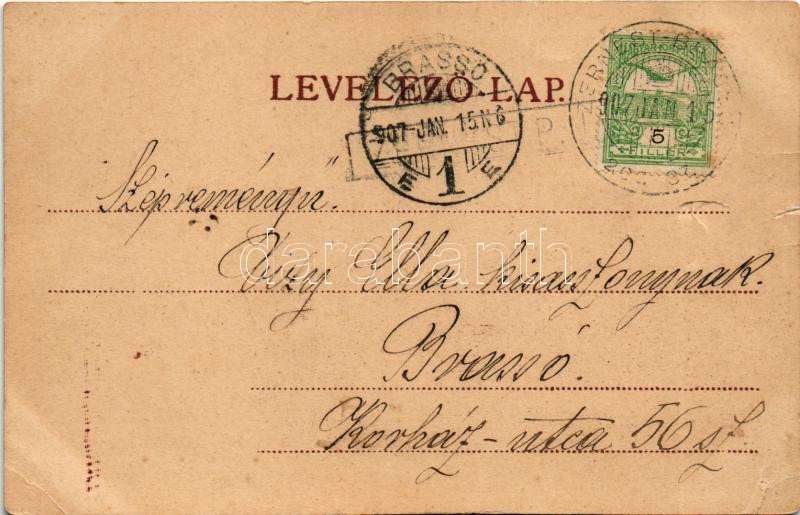 LEVELEZŐ-LAP.
BRASSÓ
907 JAN. 15 N 6
1
907 JAN. 15
MAGYAR KIR. POSTA
5
FILLÉR
"Szépreményű"
Vízy Ella kisasszonynak.
Brassó.
Korház-utca 56 sz
darabanth